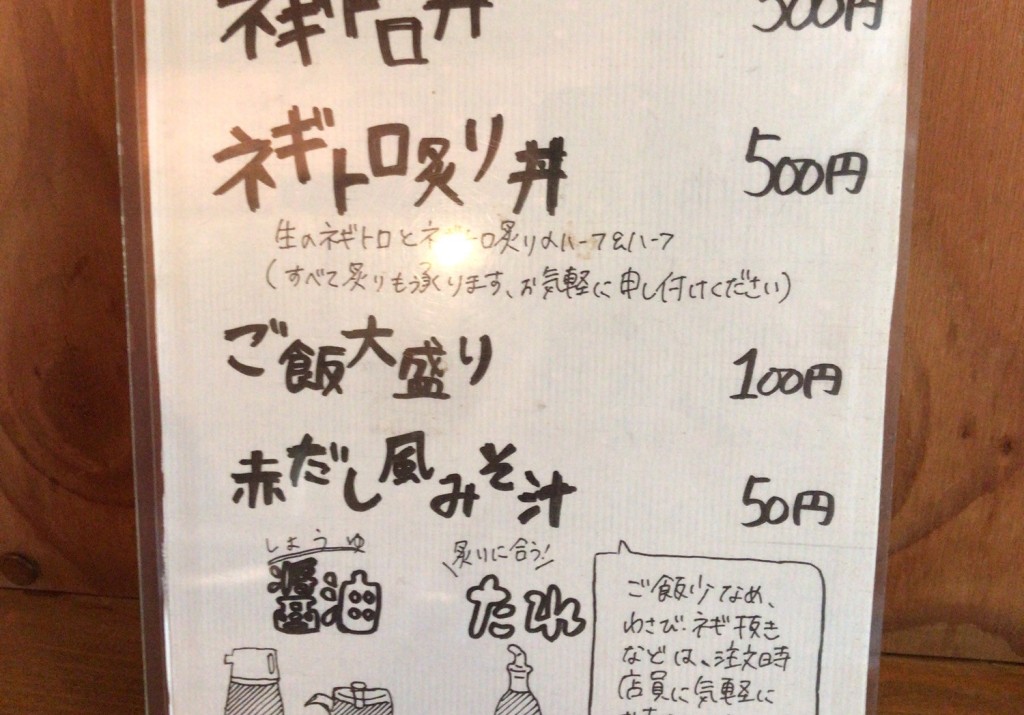 ネギトロ丼 500円
ネギトロ炙り丼 500円
生のネギトロとネギトロ炙りのハーフ&ハーフ
(すべて炙りも承ります、お気軽に申し付けください)
ご飯大盛り 100円
赤だし風みそ汁 50円
しょうゆ
醤油
炙りに合う!
たれ
ご飯少なめ、
わさび・ネギ抜き
などは、注文時
店員に気軽に